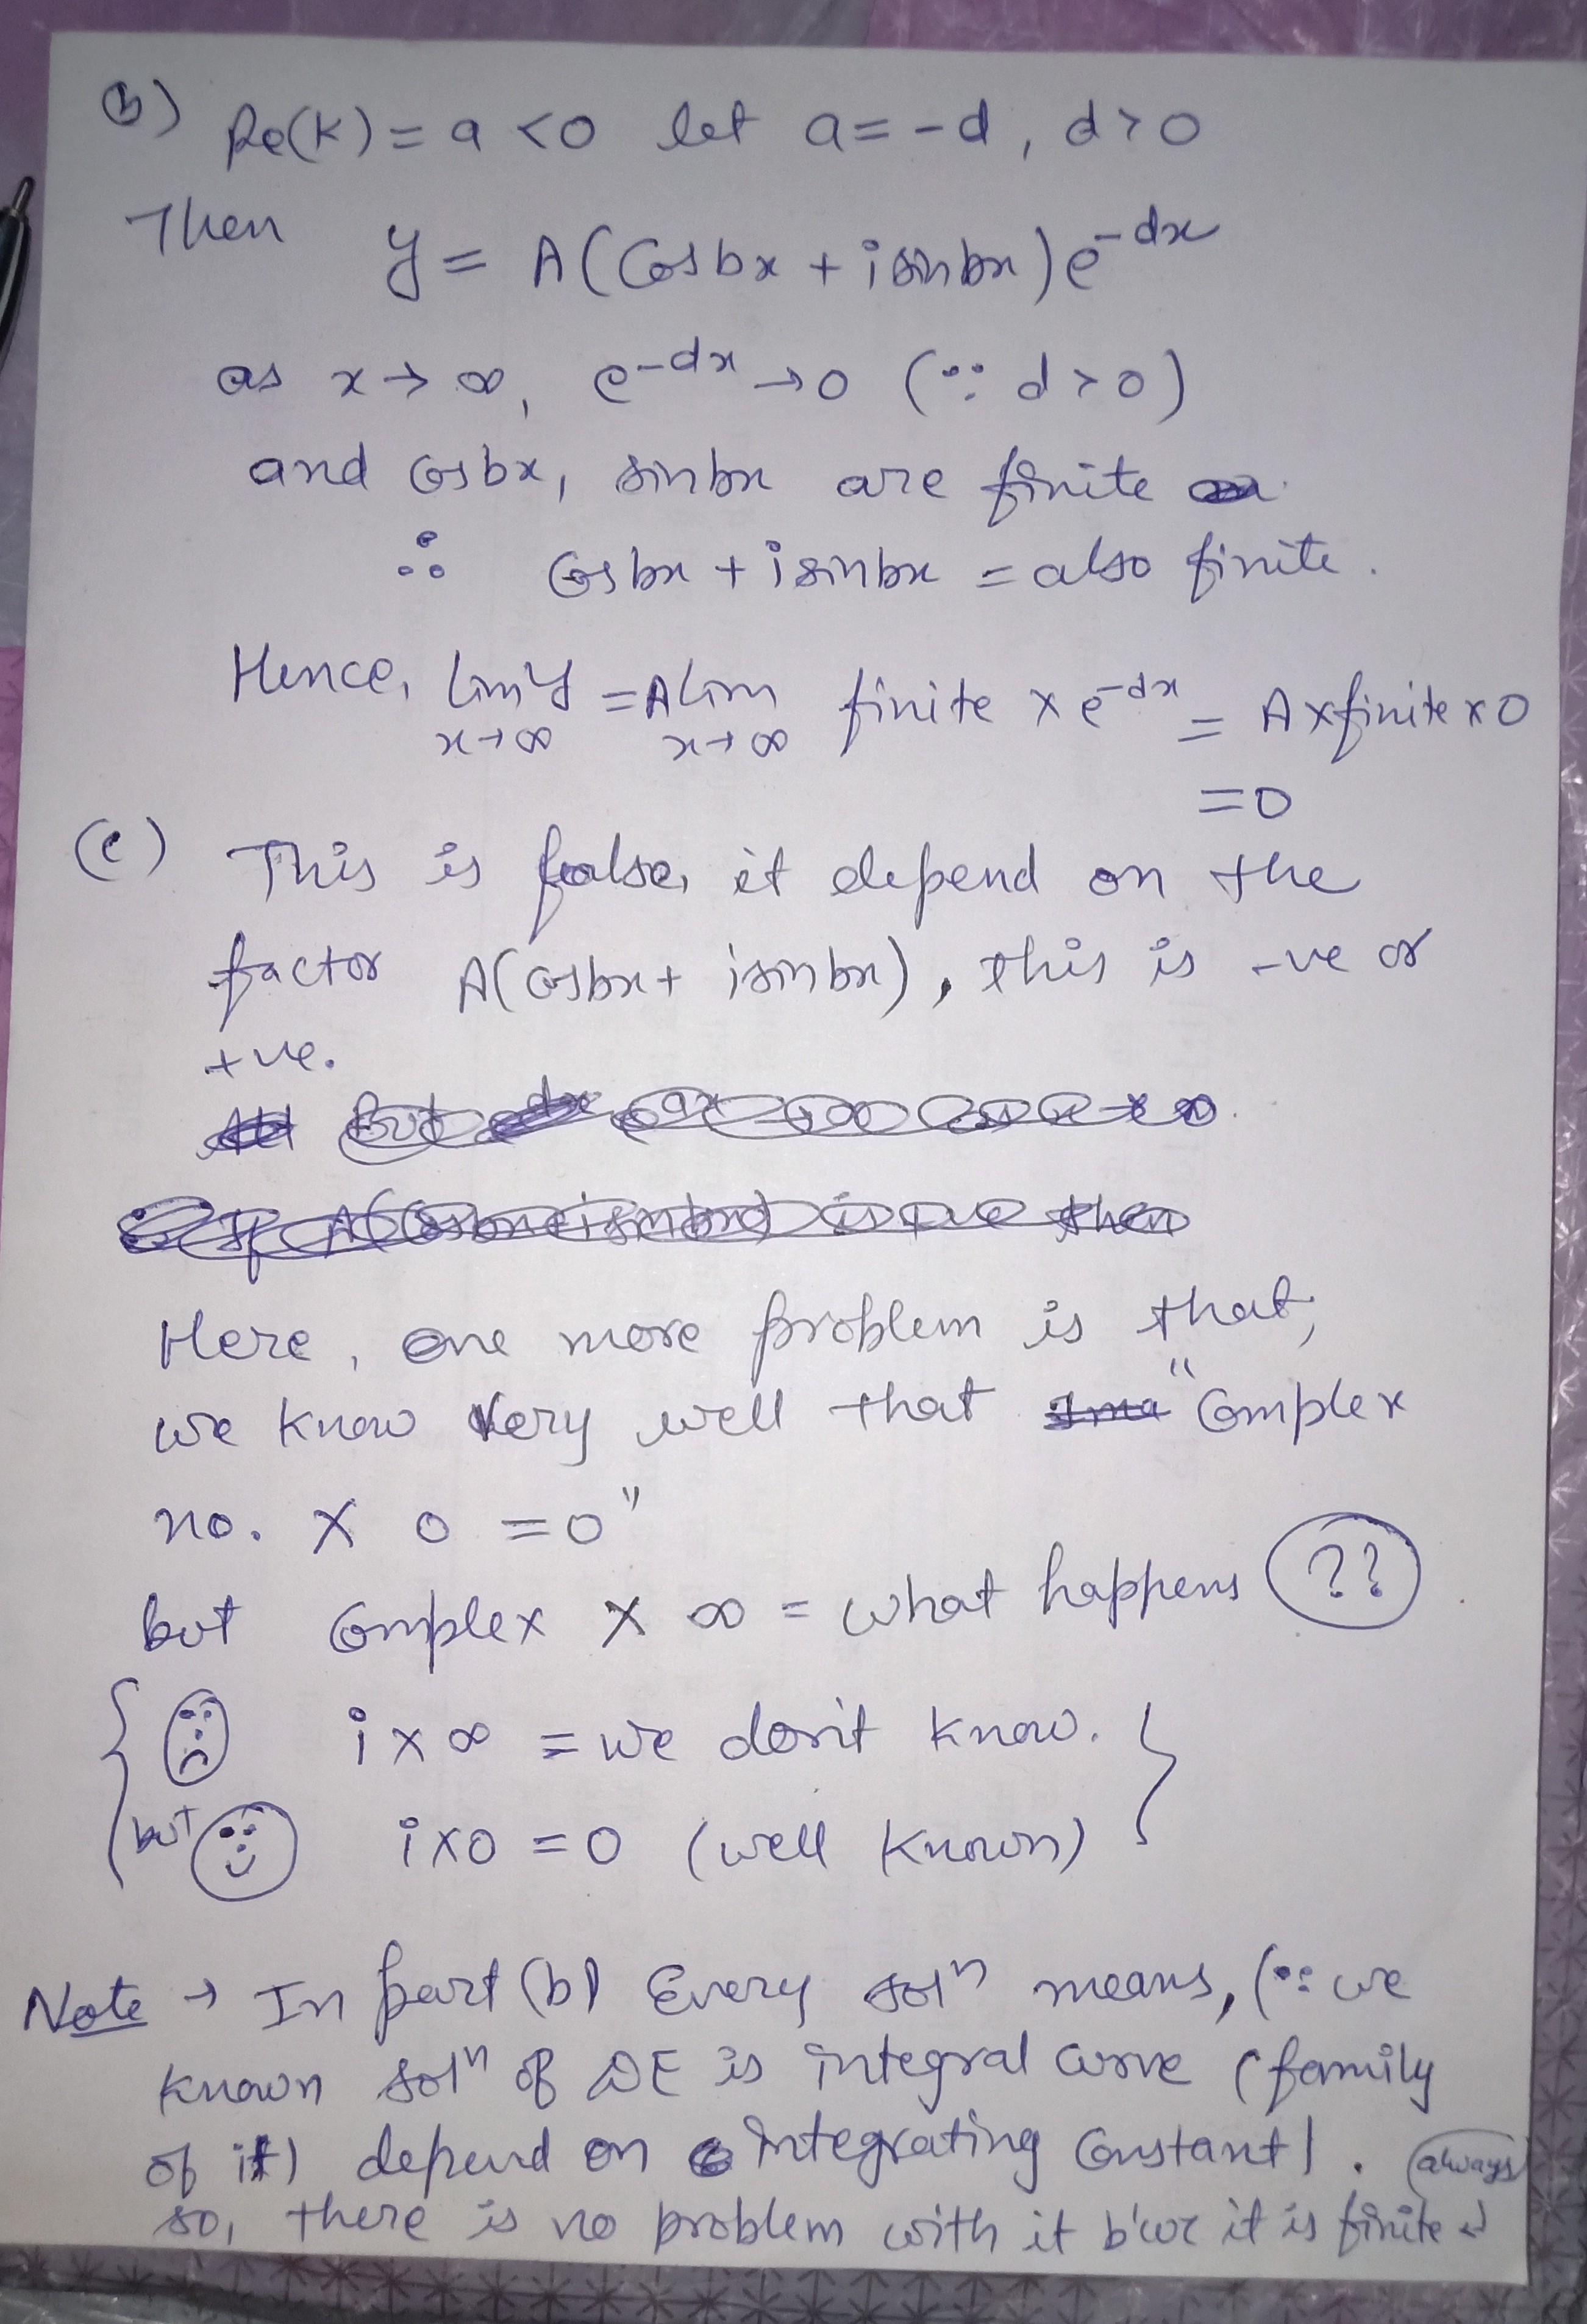 b) Re(k) = a < 0 let a = -d, d > 0
Then y = A(Cosbx + isinbx)e^-dx
as x → ∞, e^-dx → 0 (∵ d > 0)
and Cosbx, sinbx are finite
∴ Cosbx + isinbx = also finite.
Hence, lim y = A lim finite x e^-dx = A x finite x 0
x→∞ x→∞
= 0
(c) This is false, it depend on the
factor A(Cosbx + isinbx), this is -ve or
+ve.
But
If A(Cosbx + isinbx) is +ve then
Here, one more problem is that,
we know very well that "Complex
no. X 0 = 0"
but Complex X ∞ = what happens ??
i x ∞ = we don't know.
but i x 0 = 0 (well known)
Note → In part (b) Every solⁿ means, (∵ we
known solⁿ of DE is integral curve (family
of it) depend on integrating Constant). always
so, there is no problem with it b'coz it is finite